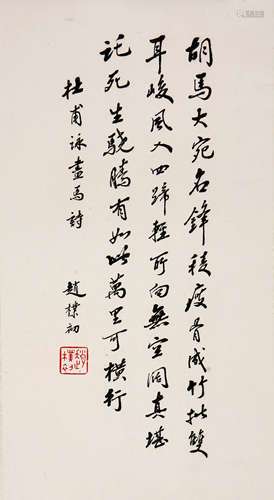 胡馬大宛名鋒稜瘦骨成竹批雙
耳峻風入四蹄輕所向無空闊真堪
託死生驍騰有如此萬里可橫行
杜甫詠畫馬詩
趙樸初